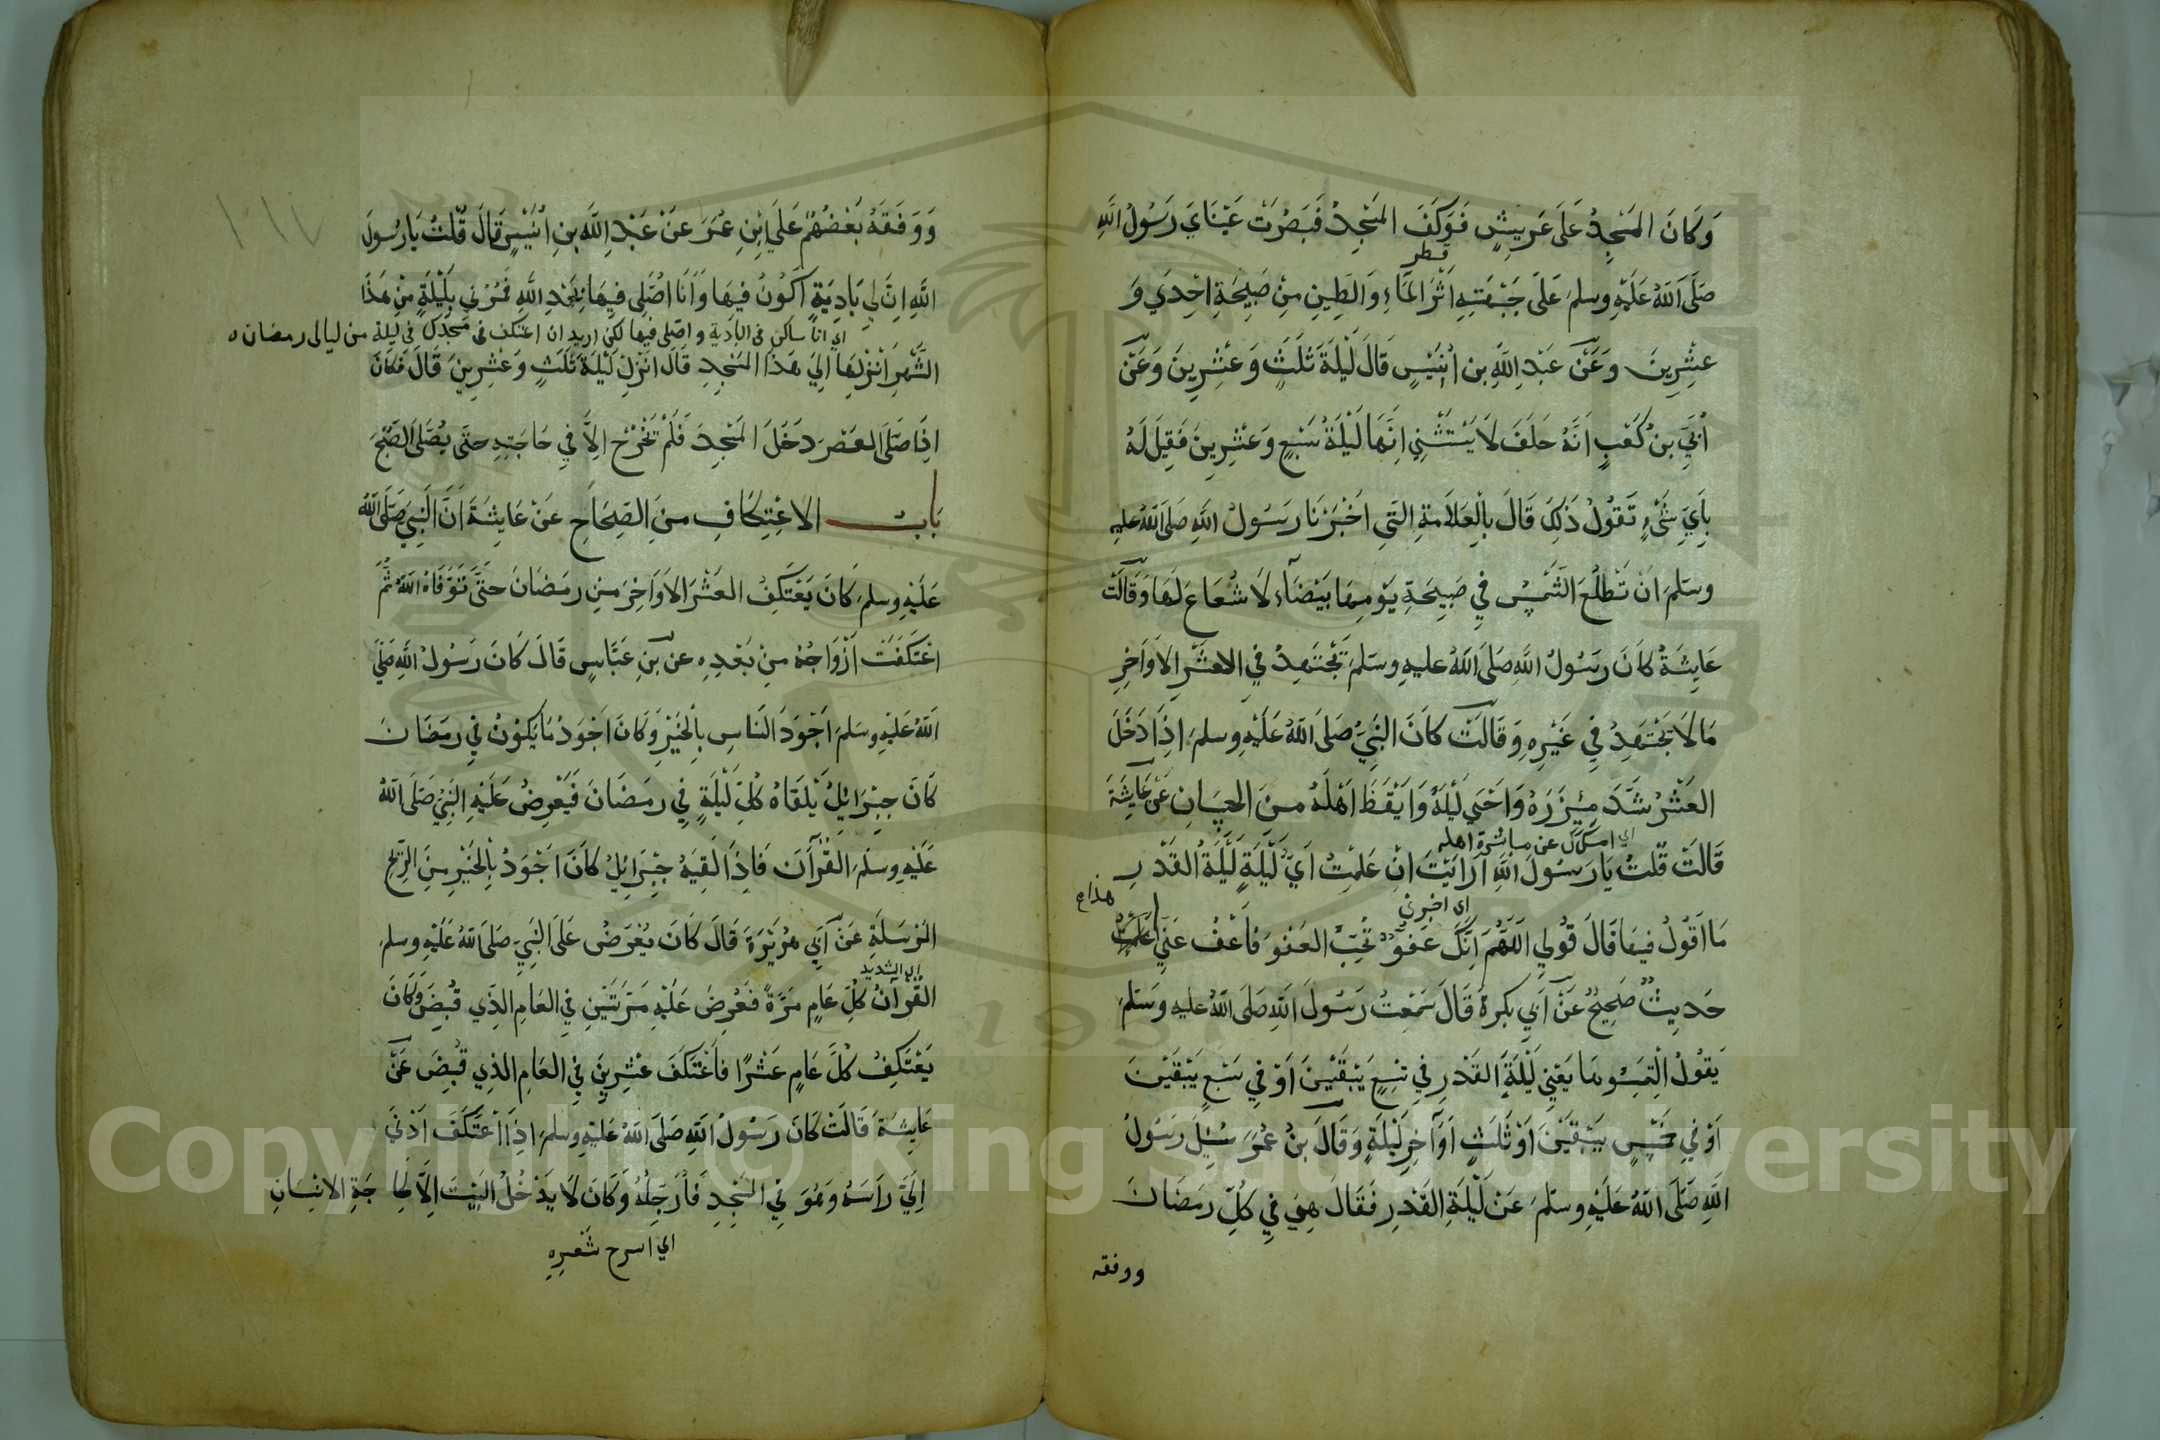 وَكَانَ المَسْجِدُ عَلَى عَرِيشٍ فَوَكَفَ المَسْجِدُ فَبَصُرَتْ عَيْنَايَ رَسُولُ اللَّهِ
قطر
صَلَّى اللَّهُ عَلَيْهِ وسلمَ عَلَى جَبْهَتِهِ اَثَرُ المَاءِ وَالطِينِ مِنْ صَبِيحَةِ اِحْدَي وَ
عشِرِينَ وَعَنْ عَبْدِ اللَّهِ بن اُنَيْسٍ قَالَ لَيْلَةَ ثَلَثٍ وَعَشِرِينَ وَعَنْ
اُبَيِّ بنُ كَعْبٍ انَّهُ حَلَفَ لَا يَسْتَثْنِي اِنَّهَا لَيْلَةُ سَبْعٍ وَعَشْرِينَ فَقِيلَ لَهُ
بِاَيِّ شَيْءٍ تَقُولُ ذَلِكَ قَالَ بِالْعَلَامَةِ التَّي اَخْبَرَنَا رَسُولُ اللَّهِ صَلى اللَّهُ عليه
وسلمَ اَنْ تَطْلُعَ الشَّمْسُ فِي صَبِيحَةِ يَوْمِهَا بَيْضَآءَ لَا شُعَاعَ لَهَا وَقَالَتْ
عَايِشَةُ كَانَ رَسُولُ اللَّهِ صَلَى اللَّهُ عليهِ وسَلمَ يَجْتَهِدُ فِي الاعَشْرِ الاَوَاخِرِ
مَا لَا يَجْتَهِدُ فِي غَيْرِهِ وَقَالَتْ كَانَ النَّبَيُّ صَلَى اللَّهُ عَلَيْهِ وسلمَ اِذَا دَخَلَ
العَشْرُ شَدَّ مِيْزَرَهُ وَاَحْيَي لَيْلَهُ وَاَيْقَظَ اَهْلَهُ مِنَ الحِسَانِ عَنْ عَايِشَةَ
اي امسك عن مباشرة اهله
قَالَتْ قُلْتُ يَا رَسُولَ اللَّهِ اَرَاَيْتَ اِنْ عَلِمْتُ اَيُّ لَيْلَةٍ لَيْلَةُ القَدْرِ
هذا
اي اخبرني
مَا اَقُولُ فيهَا قَالَ قُولِي اللَّهُمَ اِنَّكَ عَفُوٌّ تُحِبُّ العَفْوَ فَاعْفُ عَنِّي
حَدِيثٌ صَحِيحٌ عَنْ اَبِي بكرةَ قَالَ سَمِعْتُ رَسُولَ اللَّهِ صَلَى اللَّهُ عليهِ وَسَلمَ
يَقُولُ اِلْتَمِسُوهَا يَعْنِي لَيْلَةَ القَدْرِ فِي تِسِعٍ يَبْقَيْنَ اَوْ فِي سَبْعٍ يَبْقَيْنَ
اَوْ فِي خَمْسٍ يَبْقَيْنَ اَوْ ثَلَثٍ اَوَ آخِرِ لَيْلَةٍ وَقَالَ بنُ عُمَرَ سُئِلَ رَسُولُ
اللَّهِ صَلَّى اللَّهُ عَلَيْهِ وسَلمَ عَنْ لَيْلَةِ القَدْرِ فَقَالَ هِيَ فِي كُلِّ رمَضَانَ
ووقفه
وَوَقَفَهُ بَعْضُهُمْ عَلَى اِبْنِ عُمَرَ عَنْ عَبْدِ اللَّهِ بنِ اُنَيْسٍ قَالَ قُلْتُ يَا رسُولَ
اللَّهِ اِنَّ لِي بَادِيَةٍ اَكُونُ فيهَا وَاَنَا اُصَلِّي فِيهَا بِحَمْدِ اللَّهِ فَمُرْنِي بِلَيْلَةٍ مِنْ هَذَا
اي انا ساكن في البادية واصلى فيها لكن اريد ان اعتكف في مسجدك في ليلة من ليالى رمضان
الشَّهْرِ اَنْزِلهَا اِلَي هَذَا المَسْجِدِ قَالَ انْزِلْ لَيْلَةَ ثَلَثٍ وَعِشْرِينَ قَالَ فَكَانَ
اِذَا صَلَّى العَصْرَ دَخَلَ المَسْجِدَ فَلَمْ يَخْرُجْ اِلاَّ فِي حَاجَتِهِ حتَى يُصَلِّيَ الصُّبْحَ
بَابُ الاعْتِكَافِ مِنَ الصِّحَاحِ عَنْ عَايِشَةَ اَنَّ النَّبِيَّ صَلَى اللَّهُ
عَلَيْهِ وسلمَ كَانَ يَعْتَكِفُ العَشْرَ الاَوَاخِرَ مِنِ رمَضَانَ حَتَّى تَوَفَاهُ اللَّهُ ثُمَّ
اعْتَكَفَتْ اَزْوَاجُهُ مِنْ بَعْدِهِ عن بنِ عَبَّاسٍ قَالَ كَانَ رَسُولُ اللَّهِ صَلَى
اللَّهُ عَلَيْهِ وسَلمَ اَجْوَدَ النَّاسِ بِالْخَيْرِ وَكَانَ اَجْوَدُ مَا يَكُونُ فِي رمَضَانَ
كَانَ جِبْرَائِيلُ يَلْقَاهُ كُلِّ لَيْلَةٍ فِي رمَضَانَ فَيَعْرِضُ عَلَيْهِ النَّبِيُّ صَلَى اللَّهُ
عَلَيْهِ وسلَمَ القُرْآنَ فَاِذَا لَقِيَهُ جِبْرَائِلُ كَانَ اَجْوَدُ بِالْخَيْرِ مِنَ الرِّيحِ
المُرْسَلَةِ عَنْ اَبِي هُرَيْرَةَ قَالَ كَانَ يُعْرَضُ عَلَى النَّبِيَّ صَلَى اللَّهُ عَلَيْهِ وسلم
اي الشديد
القُرْآنُ كُلَّ عَامٍ مَرَّةً فَعُرِضَ عَلَيْهِ مَرَتَيْنِ فِي العَامِ الذَّي قُبِضَ وَكَانَ
يَعْتَكِفُ كُلَّ عَامٍ عَشْرًا فَاعْتَكَفَ عشْرِينَ فِي العَامِ الذِي قُبِضَ عَنْ
عَايِشَةَ قَالَتْ كَانَ رَسُولُ اللَّهِ صَلَى اللَّهُ عَلَيْهِ وسلمَ اِذَا اعْتَكَفَ اَدْنَي
اِلَيَّ رَاَسَهُ وَهُوَ فِي المَسْجِدِ فَاُرَجِّلُهُ وَكَانَ لَا يَدْخُلُ البَيْتَ اِلاَّ لِحَاجَةِ الانِسَانِ
اي اسرح شعره
Copyright © King Saud University
1957